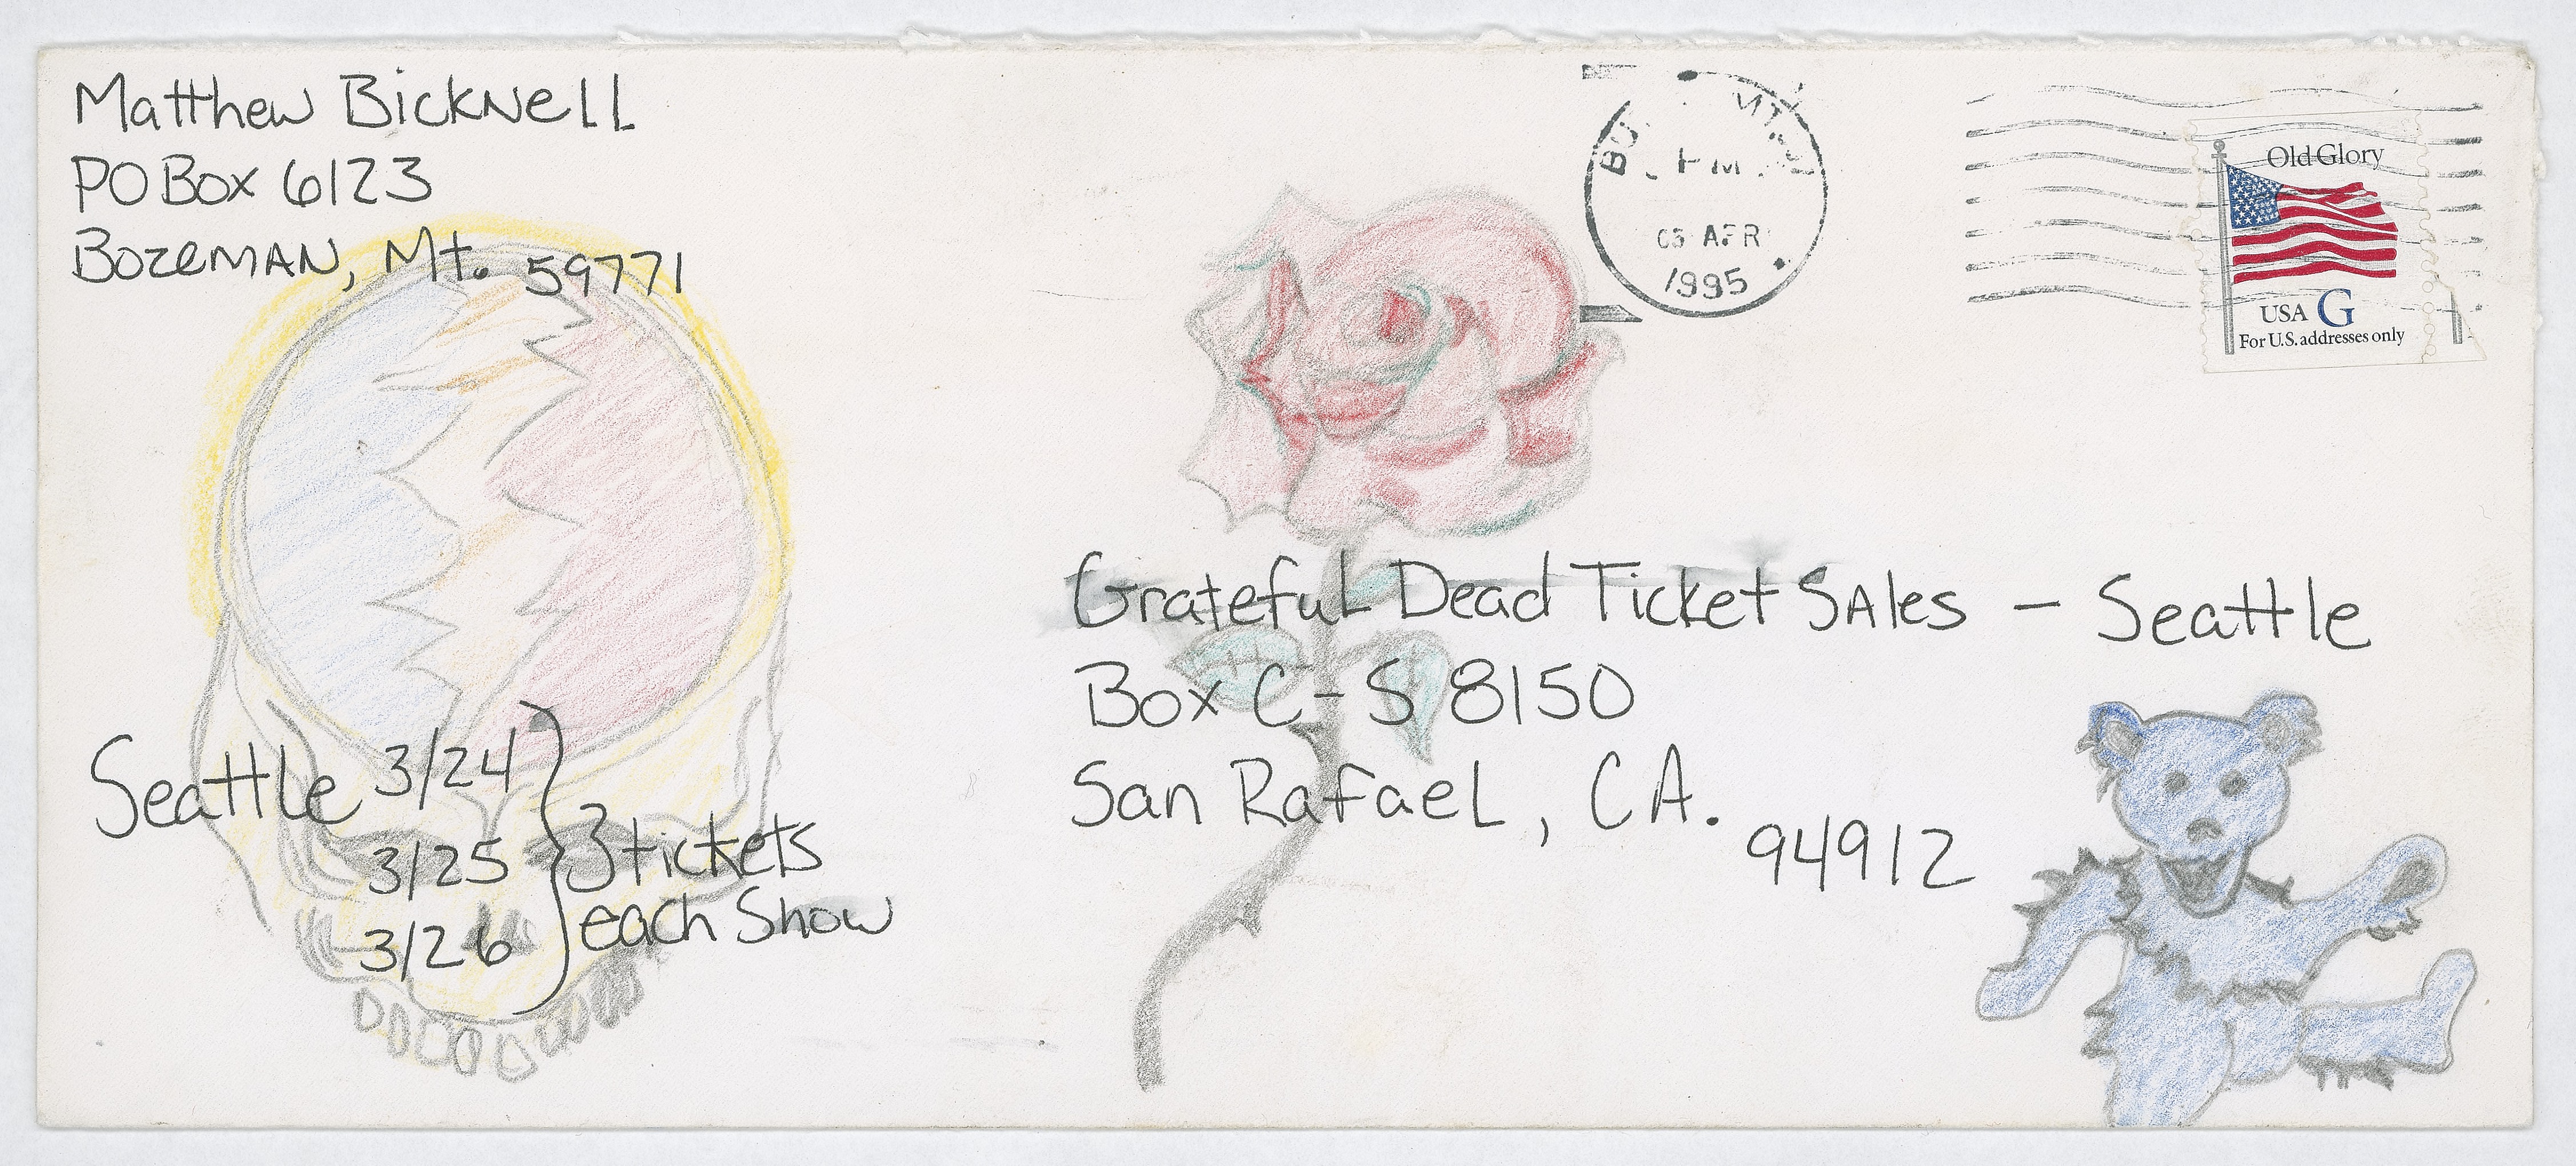 Matthew Bicknell
PO Box 6123
Bozeman, Mt. 59771
PM
05 APR
1995
Old Glory
USA G
For U.S. addresses only
Grateful Dead Ticket Sales - Seattle
Box C-S 8150
San Rafael, CA. 94912
Seattle 3/24
3/25
3/26
3 tickets
each Show